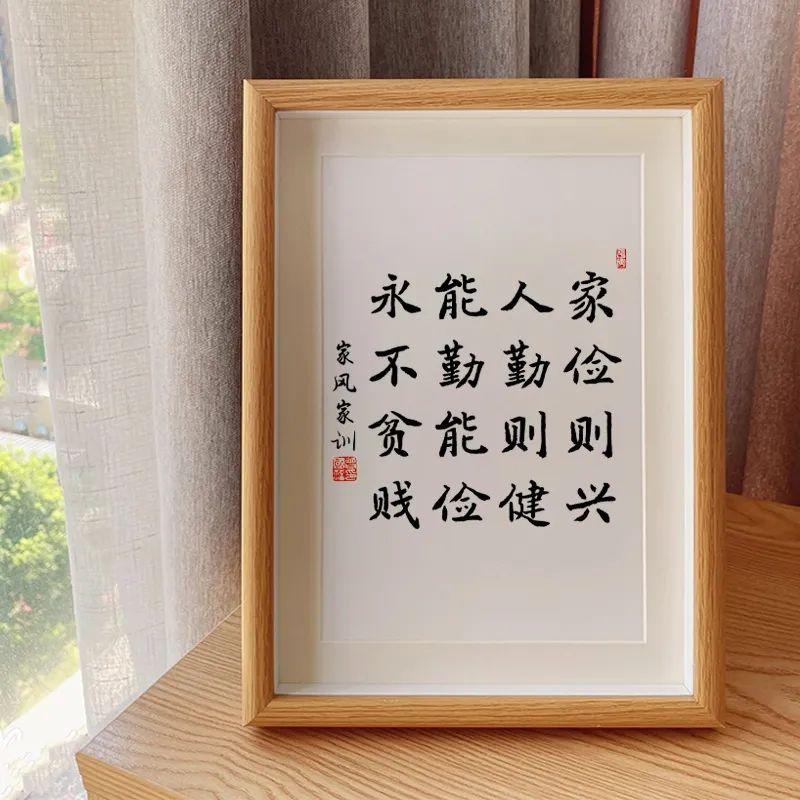 家俭则兴
人勤则健
能勤能俭
永不贫贱
家风家训